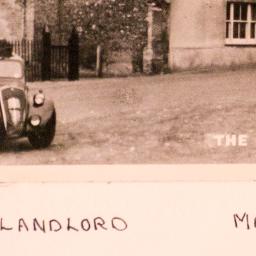 THE
LANDLORD